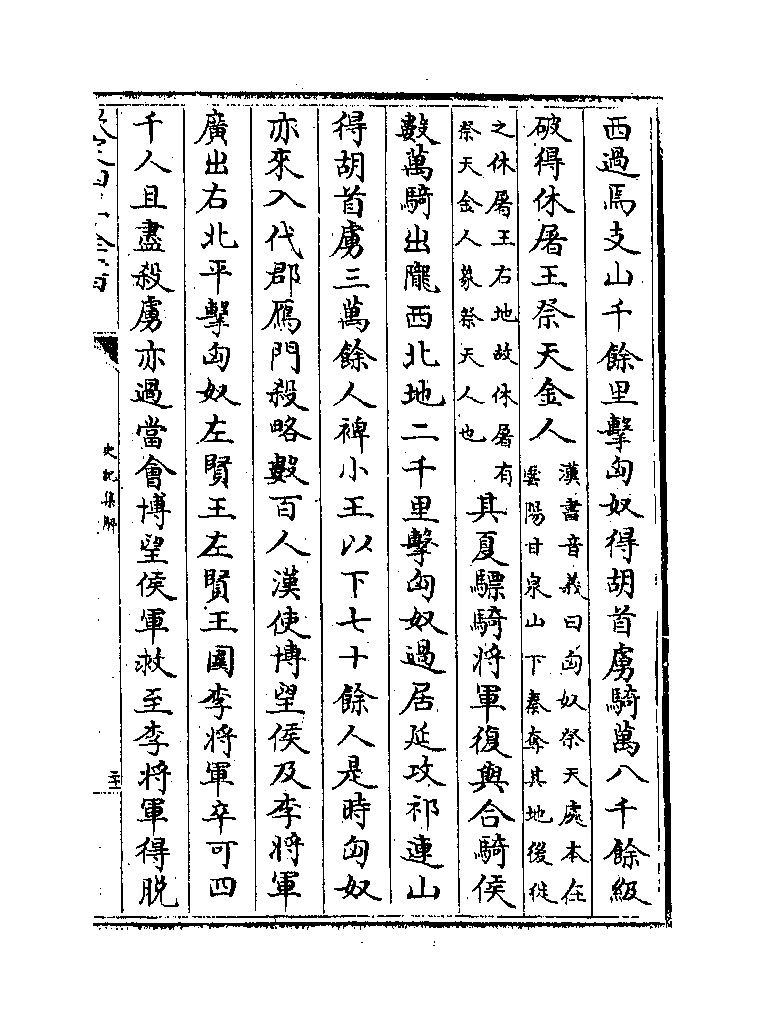 西過焉支山千餘里擊匈奴得胡首虜騎萬八千餘級
破得休屠王祭天金人
漢書音義曰匈奴祭天處本在
雲陽甘泉山下秦奪其地後徙
之休屠王右地故休屠有
祭天金人象祭天人也
其夏驃騎將軍復與合騎侯
數萬騎出隴西北地二千里擊匈奴過居延攻祁連山
得胡首虜三萬餘人裨小王以下七十餘人是時匈奴
亦來入代郡雁門殺略數百人漢使博望侯及李將軍
廣出右北平擊匈奴左賢王左賢王圍李將軍卒可四
千人且盡殺虜亦過當會博望侯軍救至李將軍得脫
史記集解